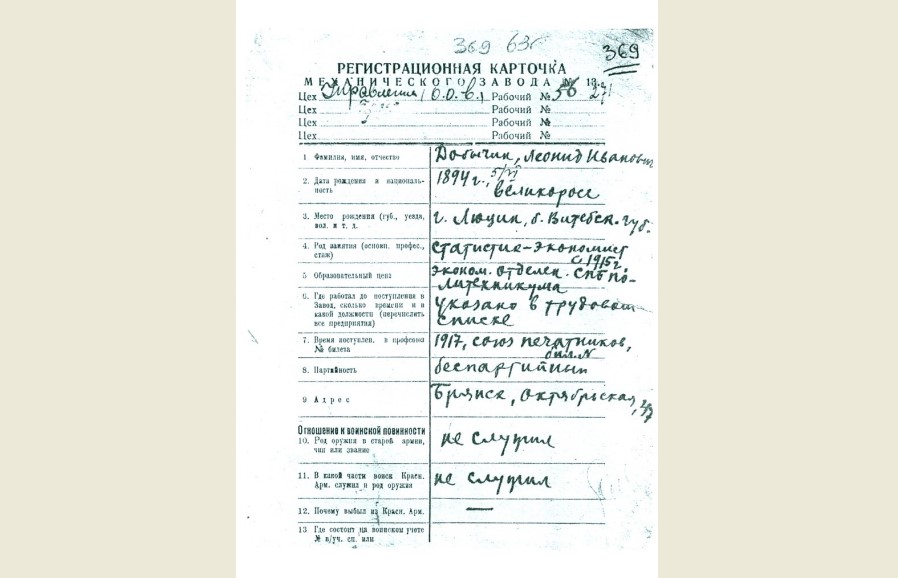 369 63
369
РЕГИСТРАЦИОННАЯ КАРТОЧКА
МЕХАНИЧЕСКОГО ЗАВОДА № 13.
Цех Управления (О.О.В.) Рабочий № 56
Цех Рабочий №
Цех Рабочий №
Цех Рабочий №
1 Фамилия, имя, отчество Добычин, Леонид Иванович
2. Дата рождения и националь- 1894 г., 5/VI
ность великоросс
3. Место рождения (губ., уезда, г. Люцин, б. Витебск. губ.
вол. и т. д.
4. Род занятия (основн. профес., статистик-экономист
стаж) с 1915 г.
5 Образовательный ценз эконом. отделен. СПб по-
литехникума
6. Где работал до поступления в указано в трудовом
Завод, сколько времени и в списке
какой должности (перечислить
все предприятия)
7. Время поступлен. в профсоюз 1917, союз печатников,
№ билета бил. N
8. Партийность беспартийный
9 Адрес Брянск, Октябрьская,
Отношение к воинской повинности
10. Род оружия в старой армии, не служил
чин или звание
11. В какой части войск Красн. не служил
Арм. служил и род оружия
12. Почему выбыл из Красн. Арм. —
13 Где состоит на воинском учете
№ в/уч. сп. или